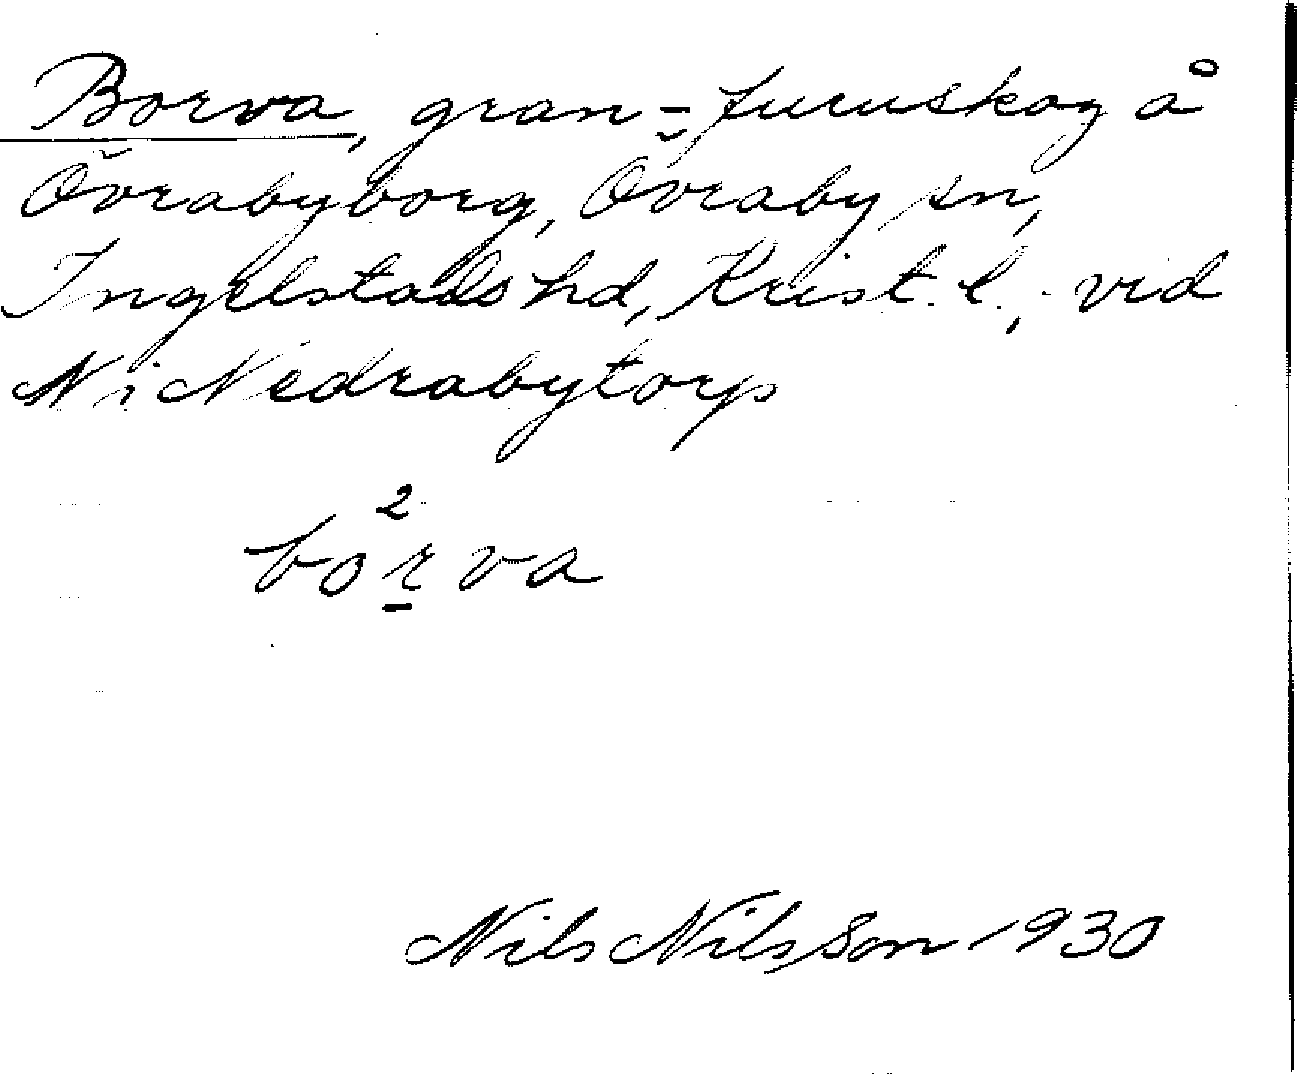 Borva, gran- furuskog å
Övrabyborg, Övraby sn,
Ingelstads hd, Krist. l., vid
N i Nedrabytorp
2
borva
Nils Nilsson 1930